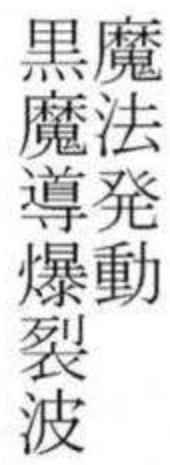 魔法発動
黒魔導爆裂波